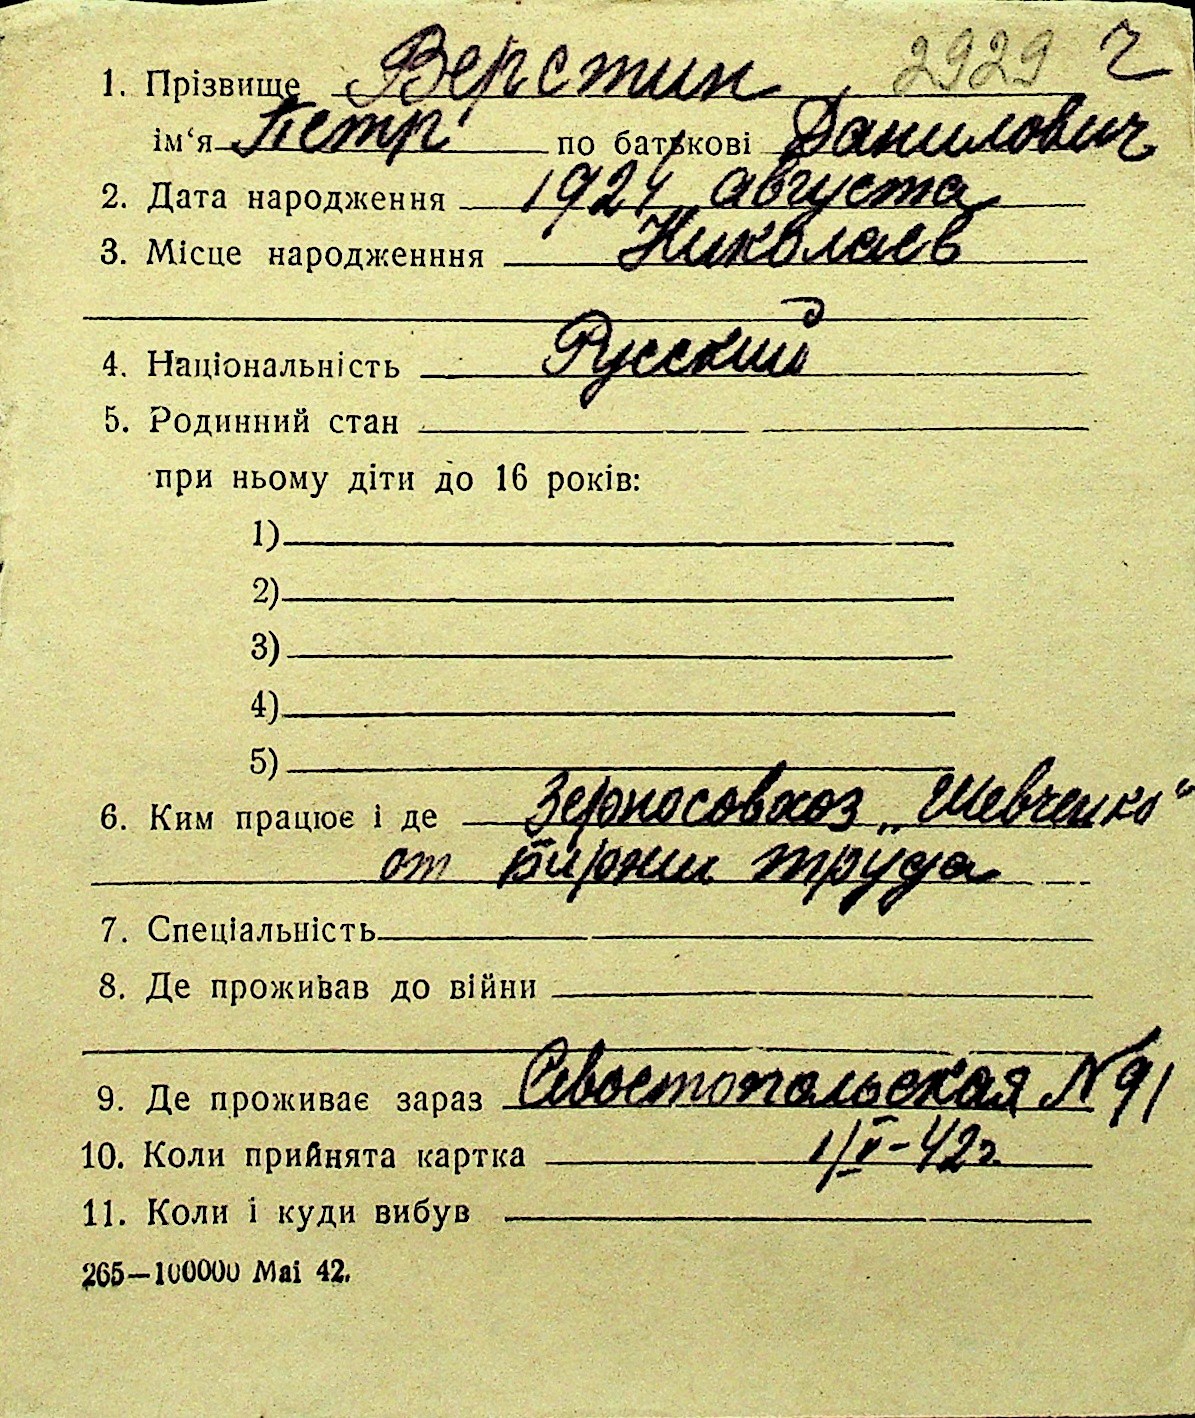 2929 2
1. Прізвище Верстин
ім‘я Петр по батькові Данилович
2. Дата народження 1924 августа
3. Місце народженння Николаев
4. Національність Русский
5. Родинний стан
при ньому діти до 16 років:
1)
2)
3)
4)
5)
6. Ким працює і де Зерносовхоз „Шевченко“
от Биржи труда
7. Спеціальність
8. Де проживав до війни
9. Де проживає зараз Севостопольская N 91
10. Коли прийнята картка 1/V-42г
11. Коли і куди вибув
265—100000 Mai 42.